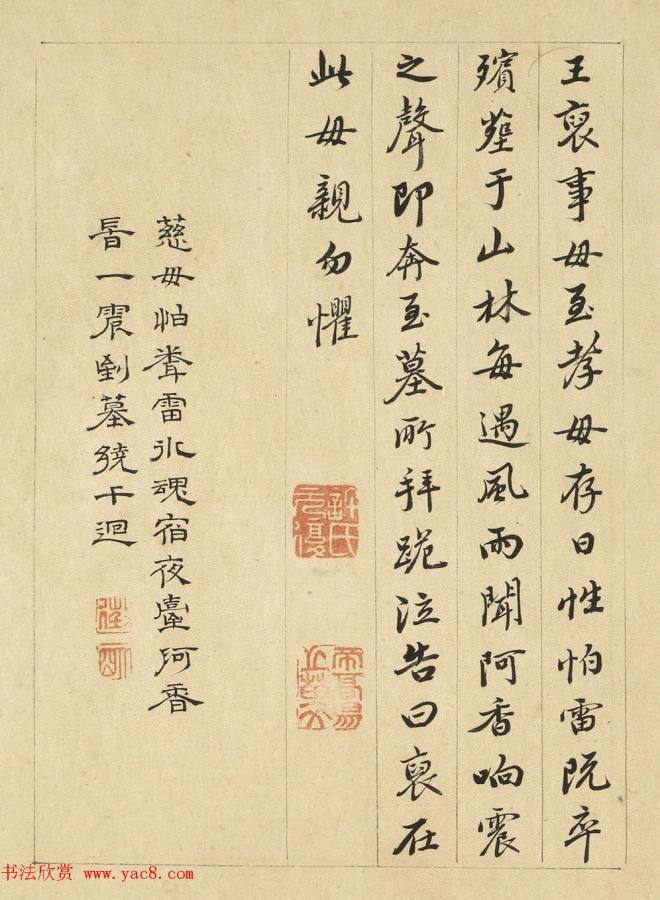 王裒事母至孝母存日性怕雷既卒
殯葬于山林每遇風雨聞阿香响震
之聲即奔至墓所拜跪泣告曰裒在
此母親勿懼
許氏元復
慈母怕聞雷冰魂宿夜臺阿香
旹一震到墓繞千迴
书法欣赏 www.yac8.com